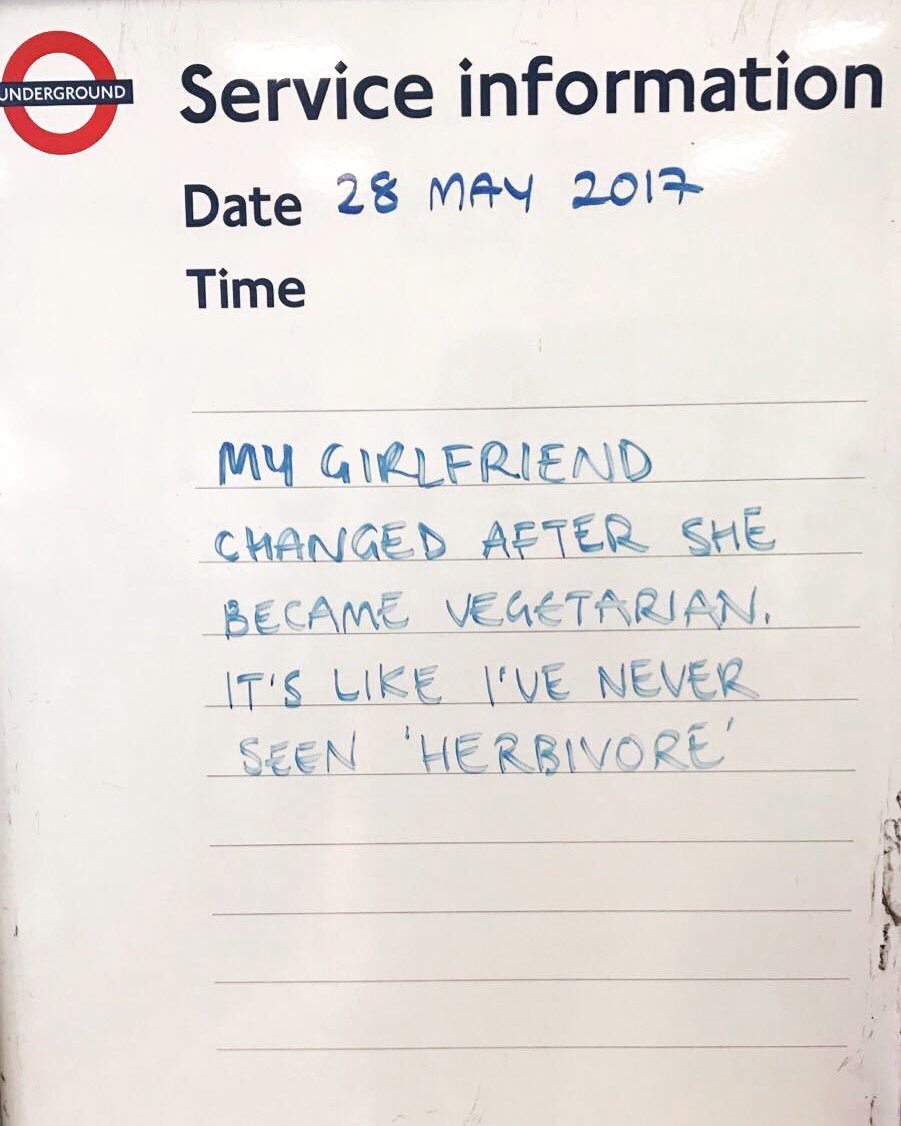 UNDERGROUND
Service information
Date 28 MAY 2017
Time
MY GIRLFRIEND
CHANGED AFTER SHE
BECAME VEGETARIAN.
IT'S LIKE I'VE NEVER
SEEN 'HERBIVORE'